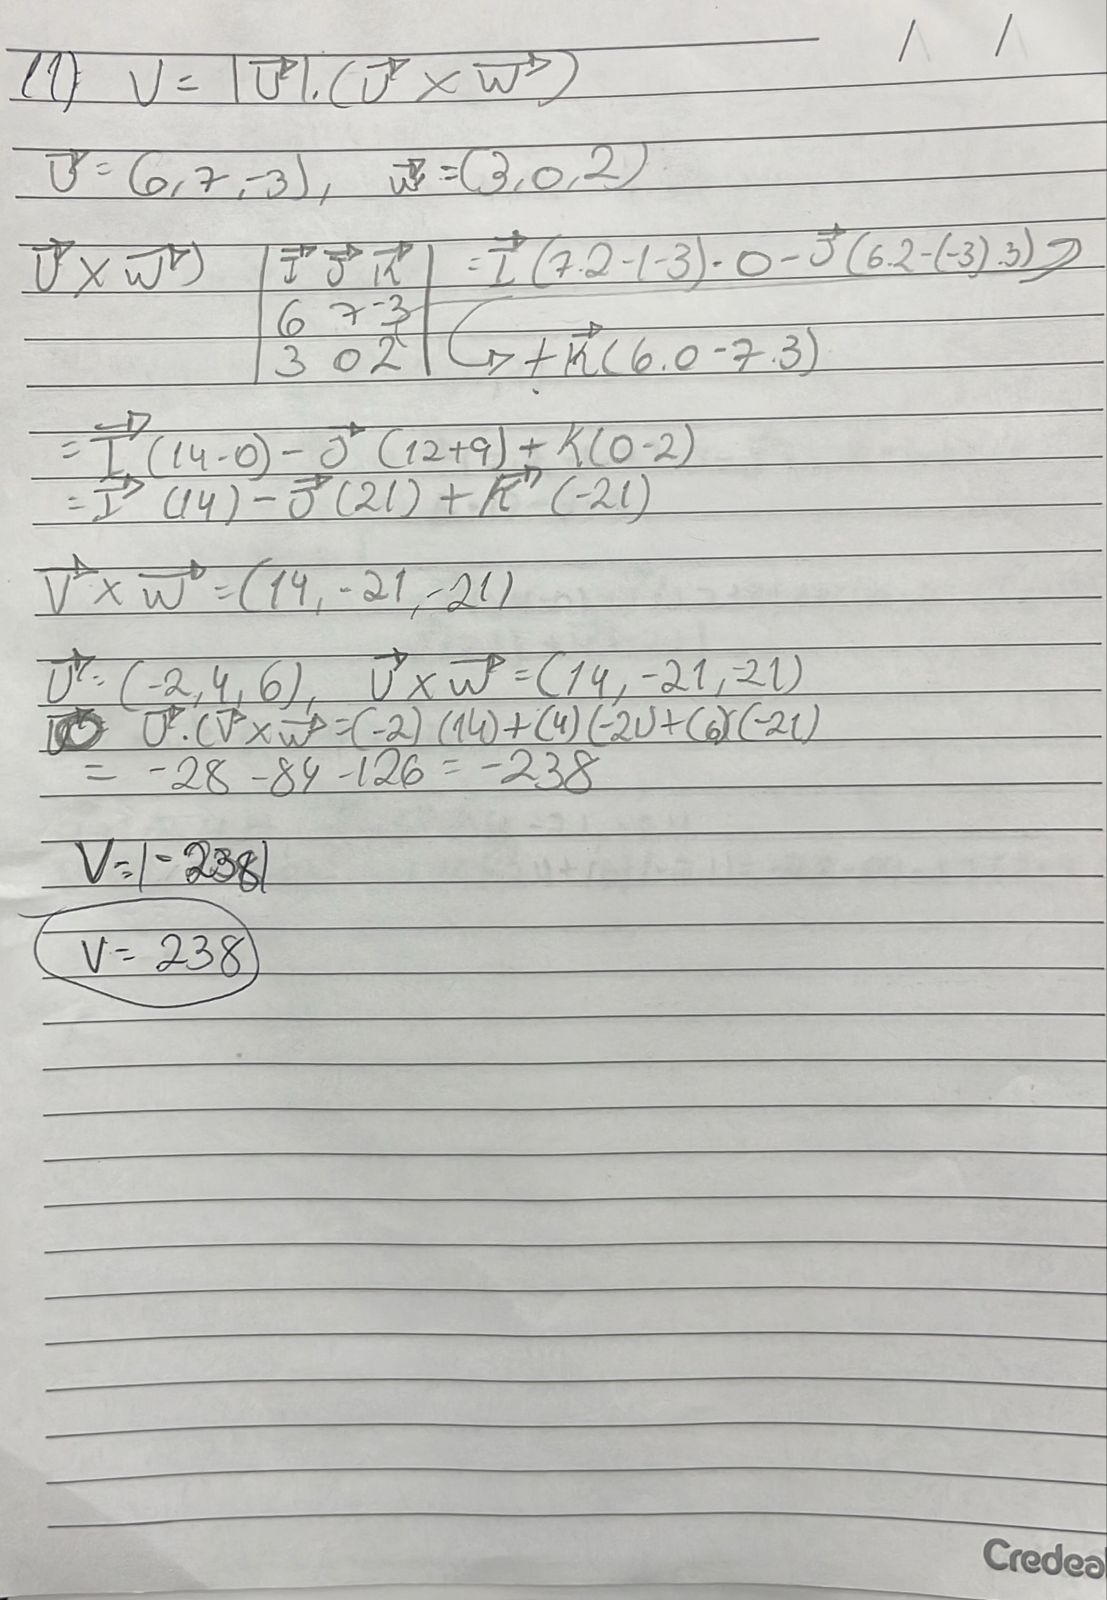 (1) V = |U|.(V × W)
V = (6, 7, -3), W = (3, 0, 2)
V × W) | I J K | = I (7.2 - (-3) . 0 - J (6.2 - (-3).3)
6 7 -3
3 0 2 + K (6.0 - 7.3)
= I (14 - 0) - J (12 + 9) + K (0 - 2)
= I (14) - J (21) + K (-21)
V × W = (14, -21, -21)
U = (-2, 4, 6), V × W = (14, -21, -21)
U . (V × W = (-2) (14) + (4) (-21) + (6) (-21)
= -28 - 84 - 126 = -238
V = |-238|
V = 238
Credea